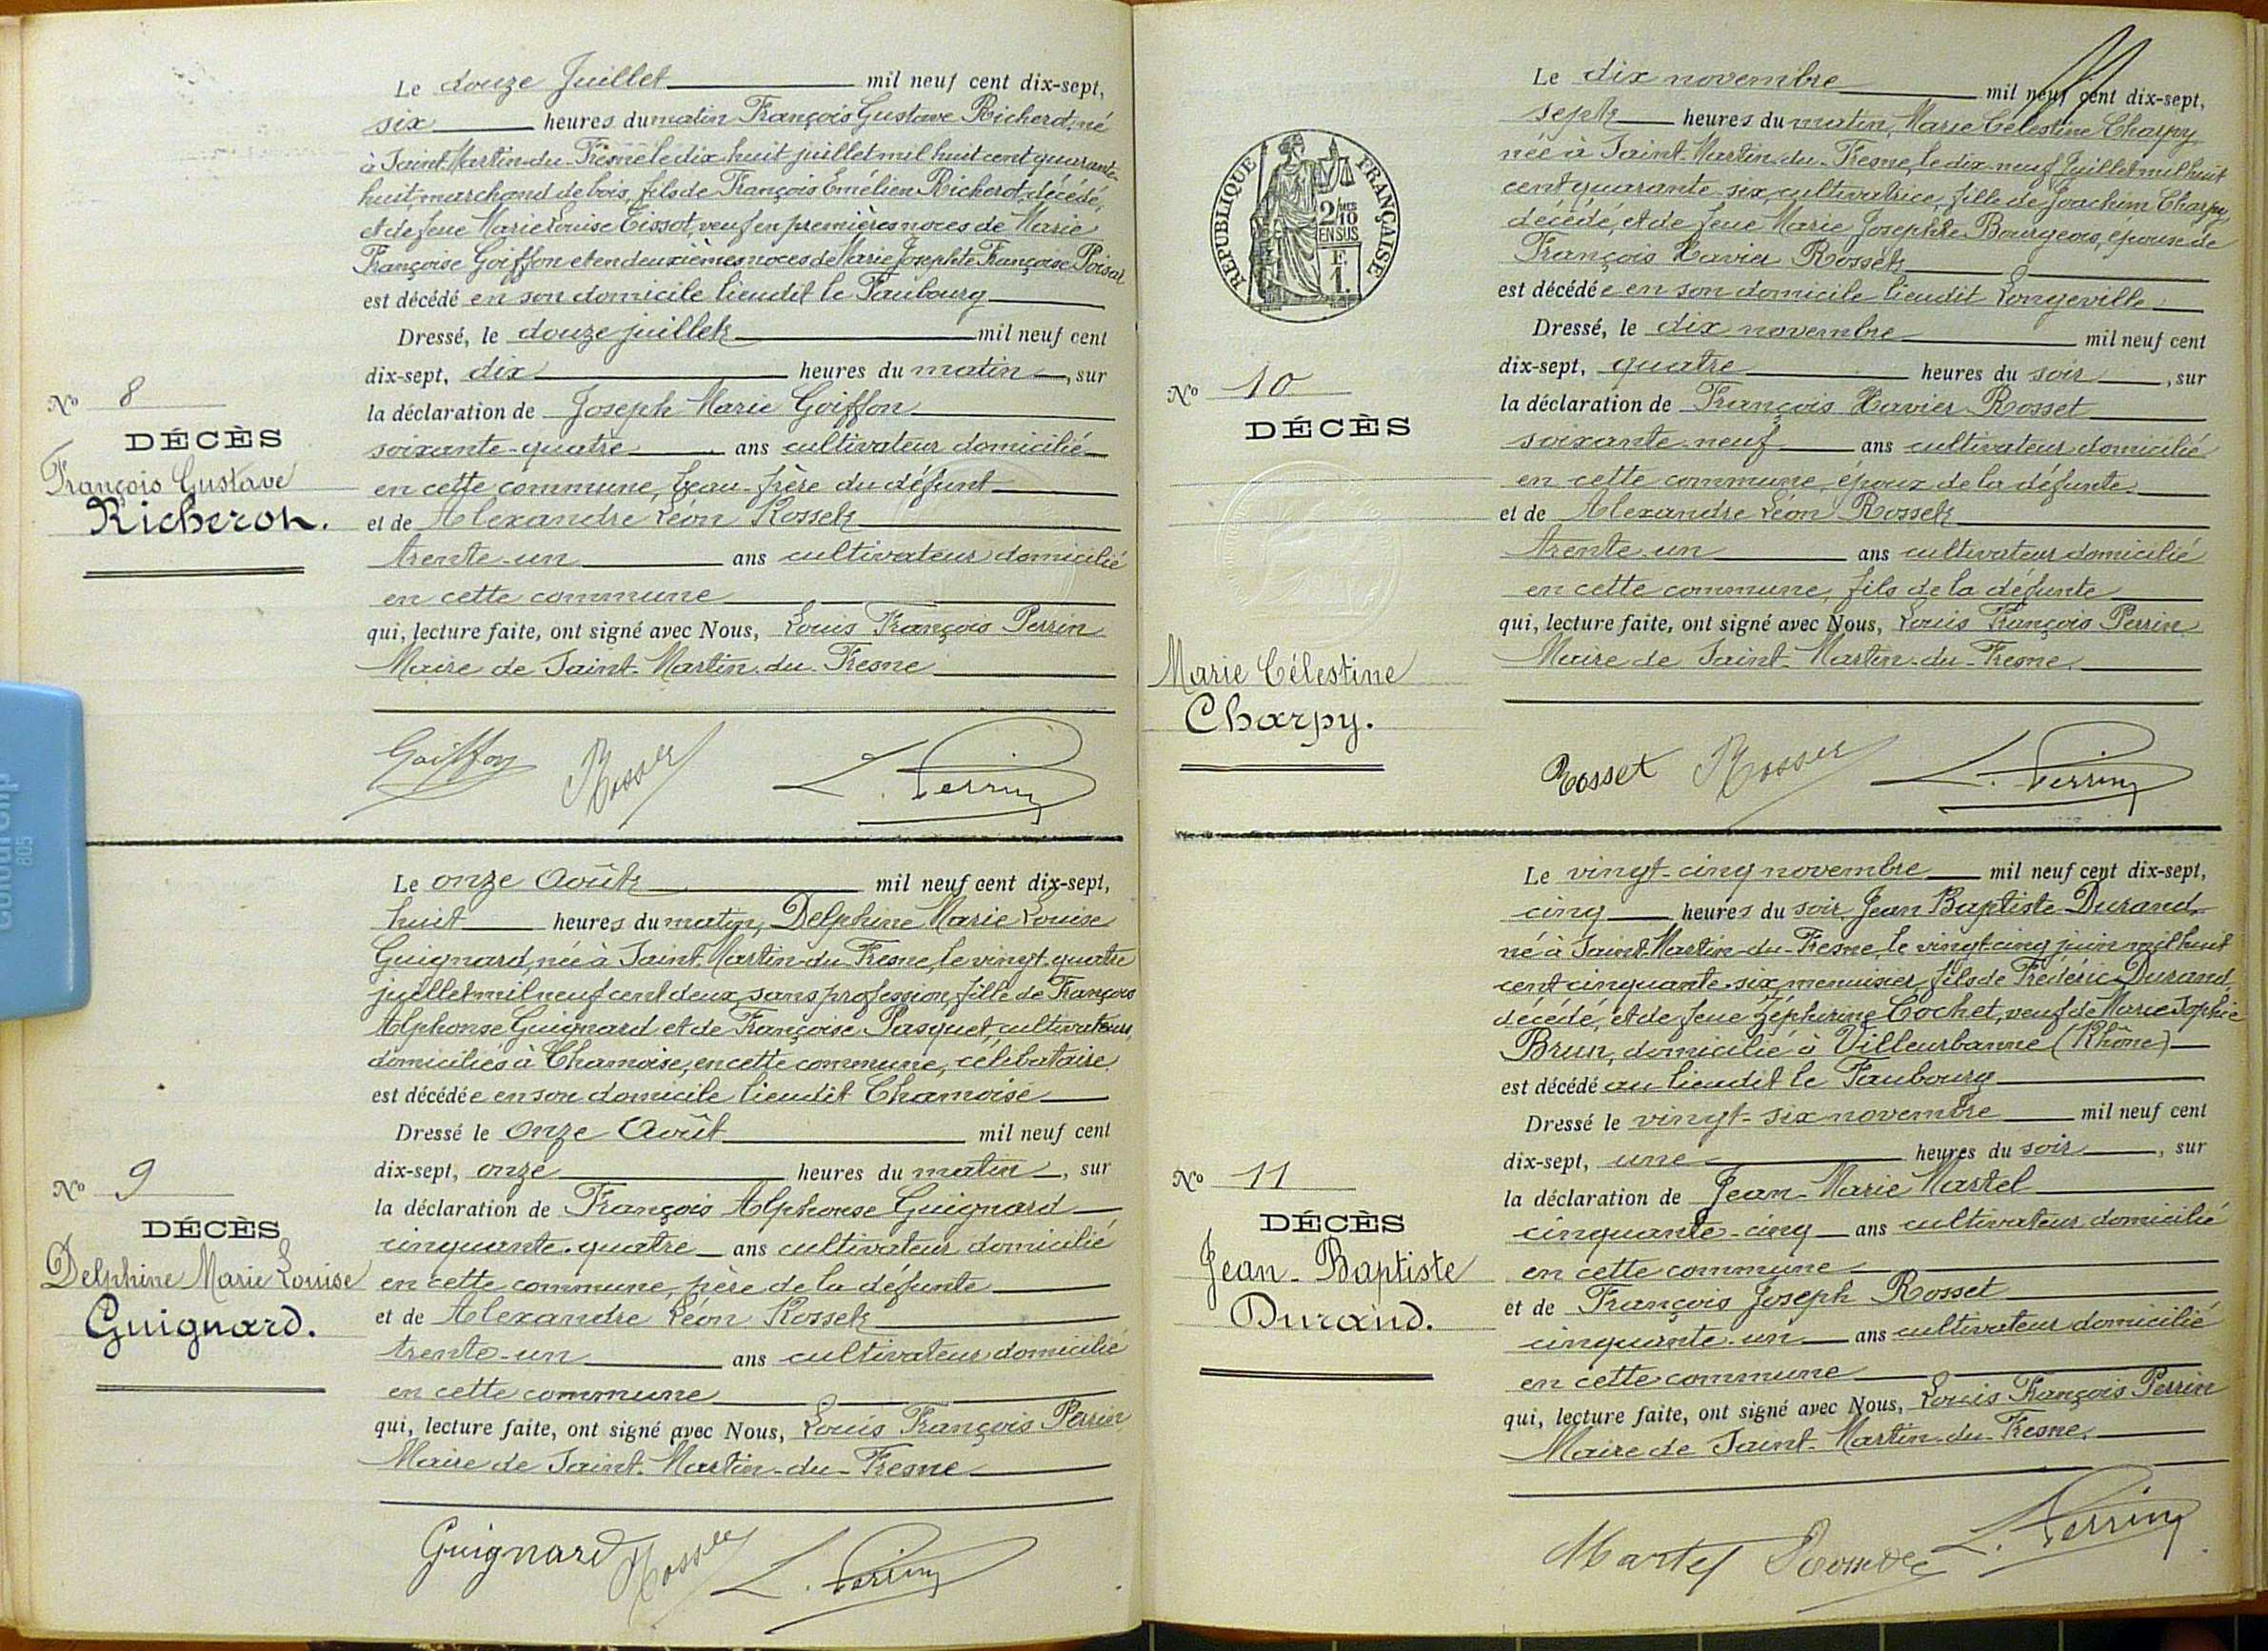 Le douze Juillet mil neuf cent dix-sept,
six heures du matin François Gustave Richerot, né
à Saint-Martin-du-Fresne le dix huit juillet mil huit cent quarante-
huit marchand de bois, fils de François Emélien Richerot, décédé,
et de feue Marie Louise Tissot, veuf en premières noces de Marie
Françoise Goiffon et en deuxièmes noces de Marie Josephte Françoise Poisat
est décédé en son domicile lieudit le Faubourg
Dressé, le douze juillet mil neuf cent
dix-sept, dix heures du matin, sur
la déclaration de Joseph Marie Goiffon
soixante-quatre ans cultivateur domicilié
en cette commune, beau-frère du défunt
et de Alexandre Léon Rosset
trente-un ans cultivateur domicilié
en cette commune
qui, lecture faite, ont signé avec Nous, Louis François Perrin
Maire de Saint-Martin-du-Fresne
Nº 8
DÉCÈS
François Gustave
Richerot.
Goiffon Rosset L. Perrin
Le onze Août mil neuf cent dix-sept,
huit heures du matin, Delphine Marie Louise
Guignard, née à Saint-Martin-du-Fresne, le vingt-quatre
juillet mil neuf cent deux, sans profession, fille de François
Alphonse Guignard et de Françoise Pasquet, cultivateurs,
domiciliés à Chamoise, en cette commune, célibataire
est décédée en son domicile lieudit Chamoise
Dressé le Onze Août mil neuf cent
dix-sept, onze heures du matin, sur
la déclaration de François Alphonse Guignard
cinquante-quatre ans cultivateur domicilié
en cette commune, père de la défunte
et de Alexandre Léon Rosset
trente-un ans cultivateur domicilié
en cette commune
qui, lecture faite, ont signé avec Nous, Louis François Perrin
Maire de Saint-Martin-du-Fresne
Nº 9
DÉCÈS
Delphine Marie Louise
Guignard.
Guignard Rosset L. Perrin
805
RÉPUBLIQUE FRANÇAISE
2/10
EN SUS
F.
1.
Le dix novembre mil neuf cent dix-sept,
sept heures du matin, Marie Célestine Charpy
née à Saint-Martin-du-Fresne, le dix-neuf Juillet mil huit
cent quarante-six, cultivatrice, fille de Joachim Charpy,
décédé, et de feue Marie Josephte Bourgeois, épouse de
François Xavier Rosset
est décédée en son domicile lieudit Longeville
Dressé, le dix novembre mil neuf cent
dix-sept, quatre heures du soir, sur
la déclaration de François Xavier Rosset
soixante-neuf ans cultivateur domicilié
en cette commune, époux de la défunte.
et de Alexandre Léon Rosset
trente-un ans cultivateur domicilié
en cette commune, fils de la défunte
qui, lecture faite, ont signé avec Nous, Louis François Perrin
Maire de Saint-Martin-du-Fresne.
Nº 10
DÉCÈS
Marie Célestine
Charpy.
Rosset Rosset L. Perrin
Le vingt-cinq novembre mil neuf cent dix-sept,
cinq heures du soir, Jean Baptiste Durand,
né à Saint-Martin-du-Fresne, le vingt-cinq juin mil huit
cent cinquante-six, menuisier, fils de Frédéric Durand,
décédé, et de feue Zéphirine Cochet, veuf de Marie Sophie
Brun, domicilié à Villeurbanne (Rhône)
est décédé au lieudit le Faubourg
Dressé le vingt-six novembre mil neuf cent
dix-sept, une heures du soir, sur
la déclaration de Jean-Marie Martel
cinquante-cinq ans cultivateur domicilié
en cette commune
et de François Joseph Rosset
cinquante-un ans cultivateur domicilié
en cette commune
qui, lecture faite, ont signé avec Nous, Louis François Perrin
Maire de Saint-Martin-du-Fresne.
Nº 11
DÉCÈS
Jean-Baptiste
Durand.
Martel L. Perrin